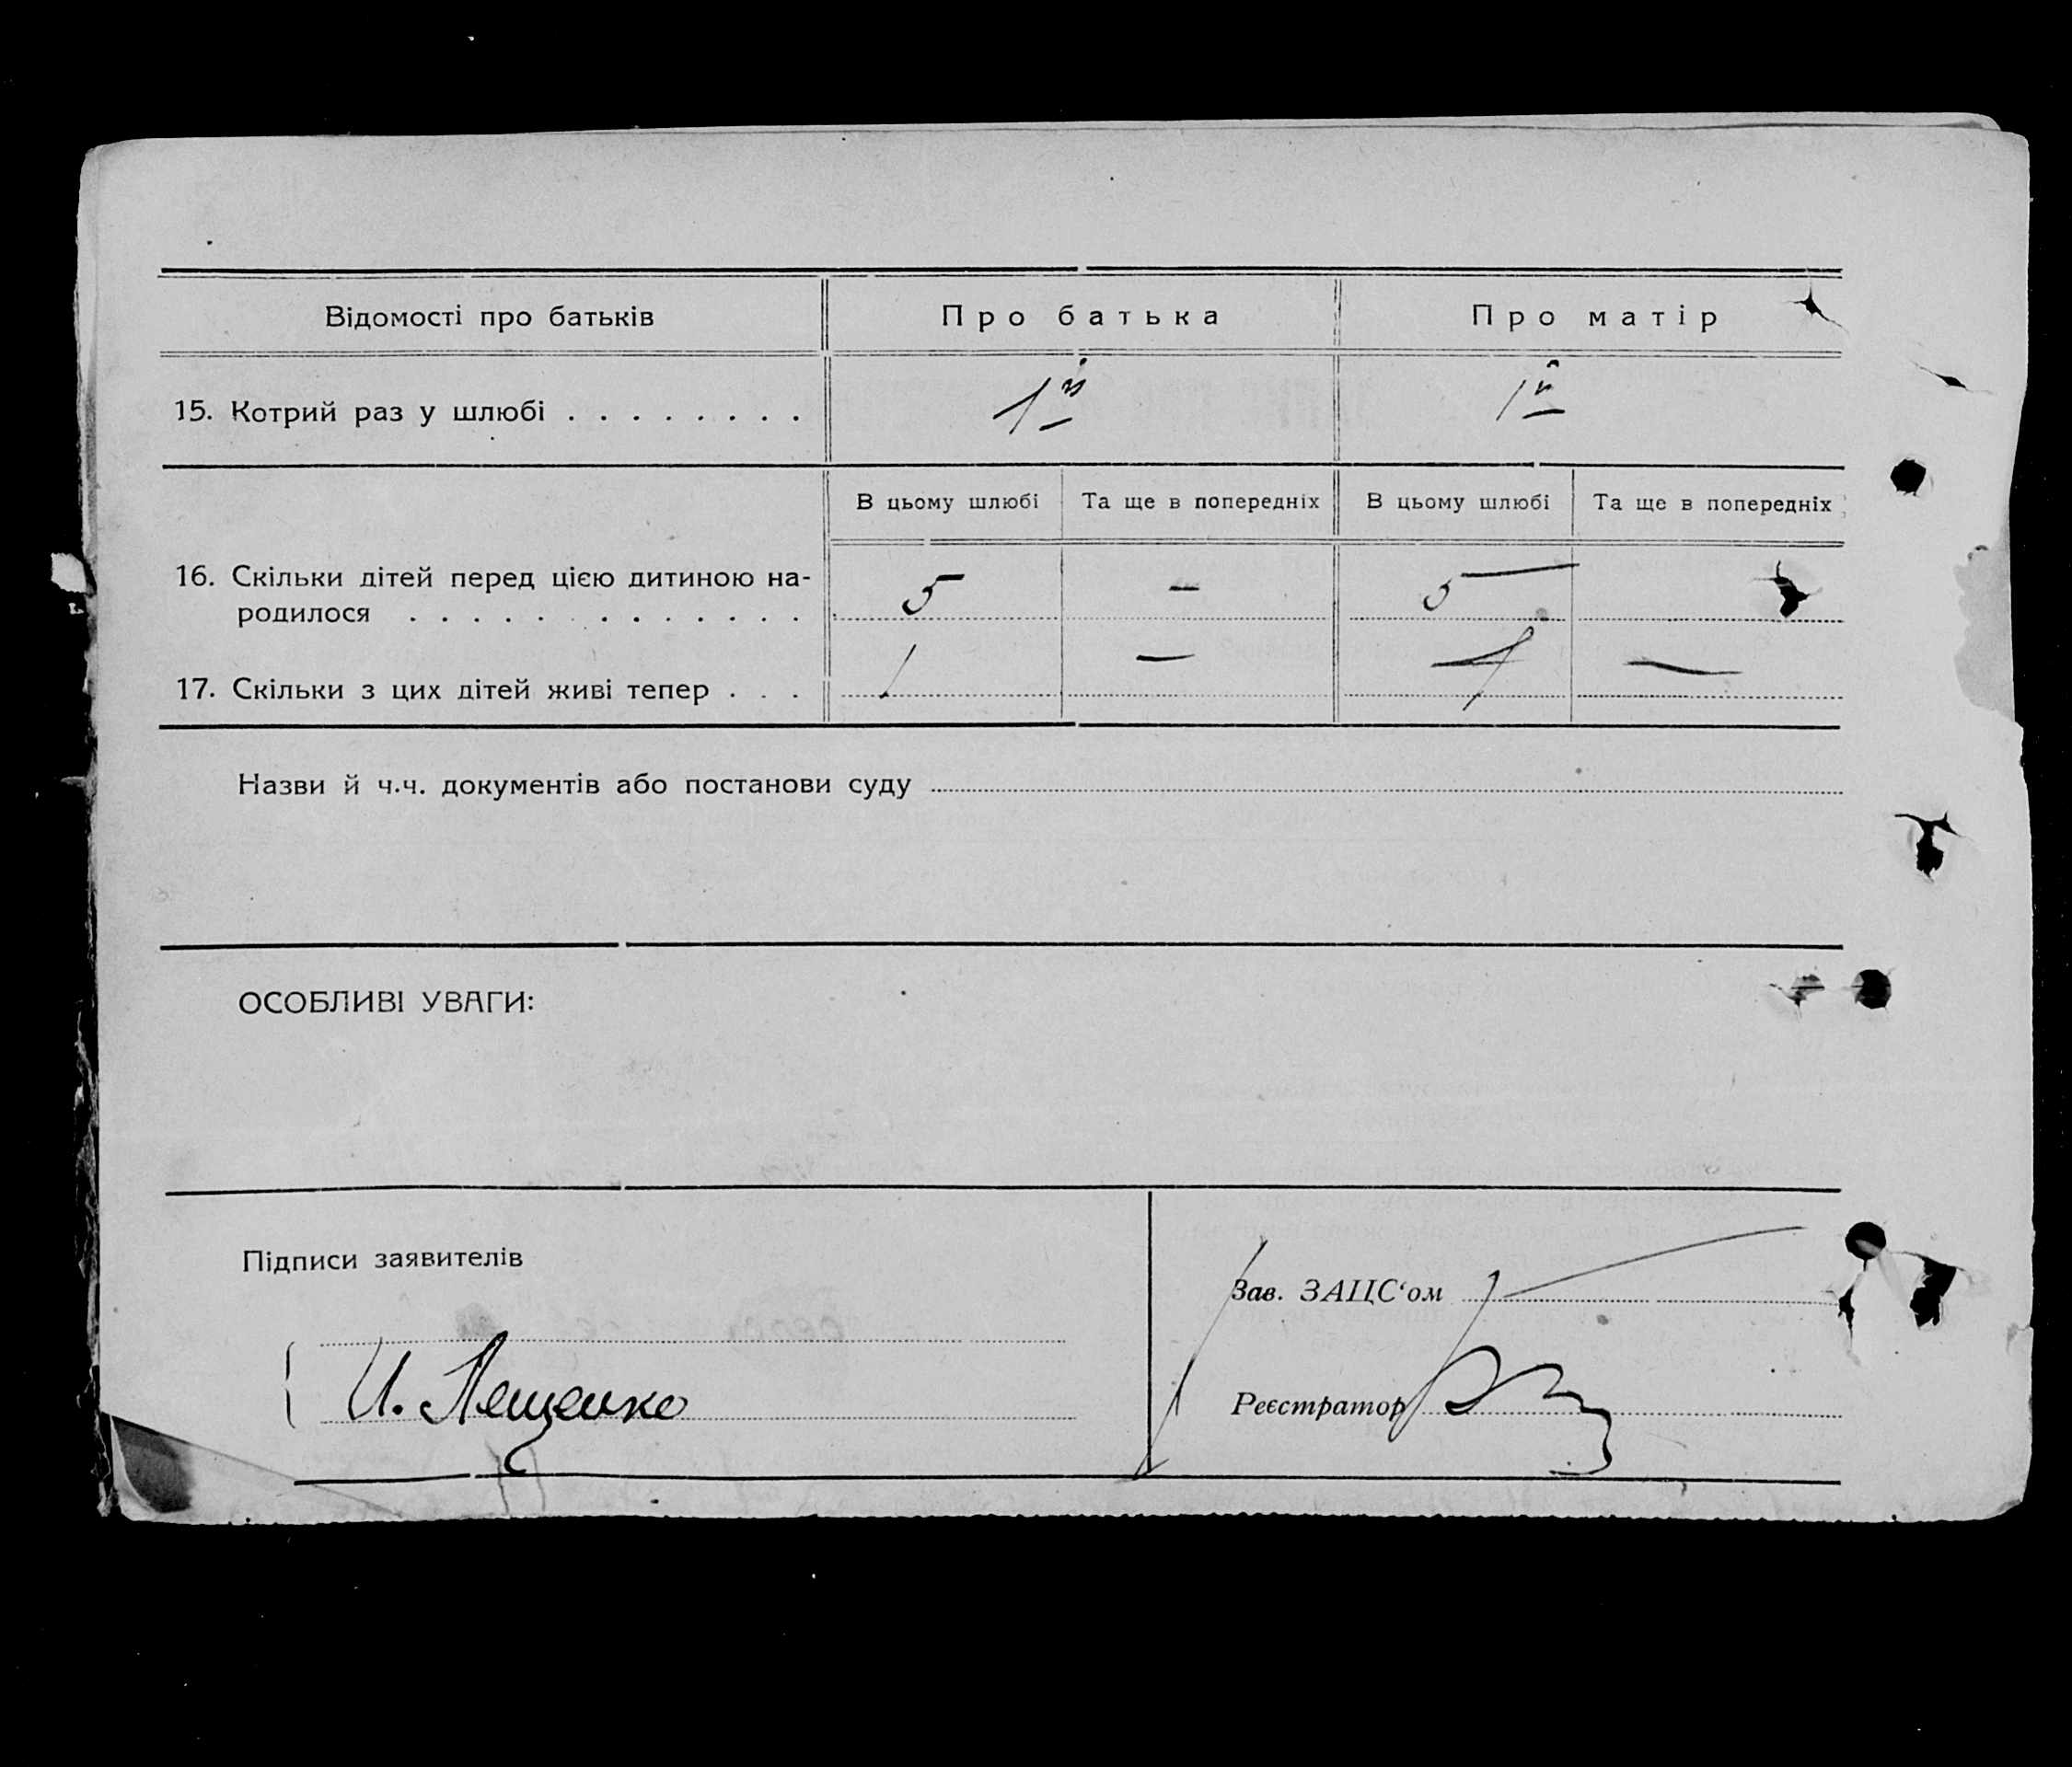 Відомості про батьків Про батька Про матір
15. Котрий раз у шлюбі . . . . . . . . 1й 1й
В цьому шлюбі Та ще в попередніх В цьому шлюбі Та ще в попередніх
16. Скільки дітей перед цією дитиною на-
родилося . . . . . . . . . . . . . 5 — 5
17. Скільки з цих дітей живі тепер . . . 1 — 1 —
Назви й ч.ч. документів або постанови суду
ОСОБЛИВІ УВАГИ:
Підписи заявителів
Зав. ЗАЦС‘ом
И. Лещенко
Реєстратор